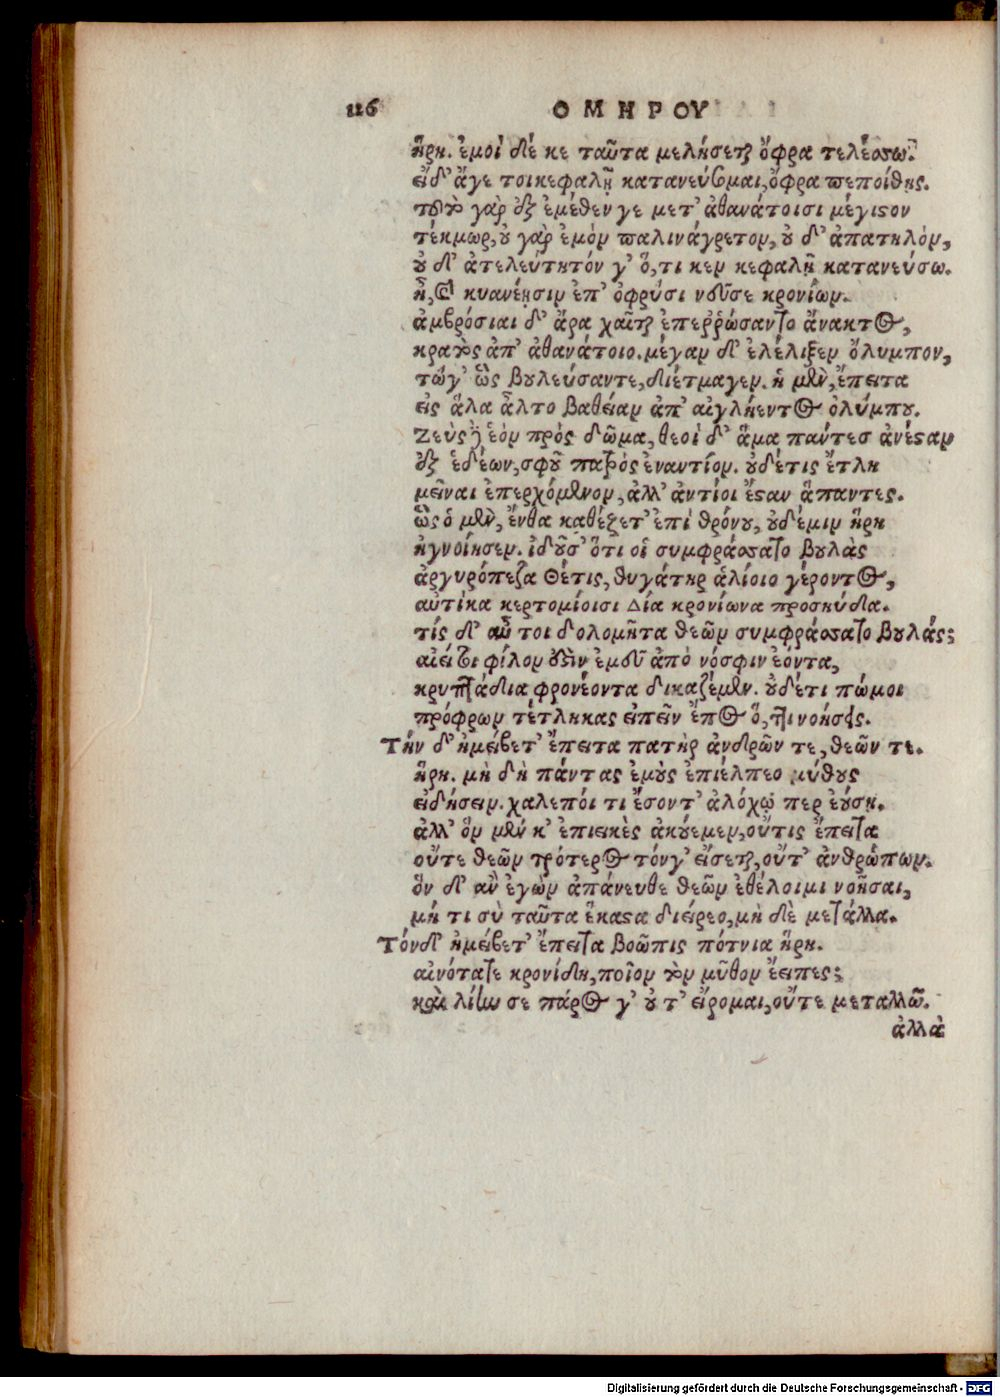 116 ΟΜΗΡΟΥ
ἥρη. ἐμοὶ δέ κε ταῦτα μελήσεται ὄφρα τελέσσω.
εἰ δ' ἄγε τοι κεφαλῇ κατανεύσομαι, ὄφρα πεποίθῃς.
τοῦτο γὰρ ἐξ ἐμέθεν γε μετ' ἀθανάτοισι μέγιστον
τέκμωρ, οὐ γὰρ ἐμὸν παλινάγρετον, οὐ δ' ἀπατηλόν,
οὐ δ' ἀτελεύτητόν γ' ὅ, τι κεν κεφαλῇ κατανεύσω.
ἦ, καὶ κυανέῃσιν ἐπ' ὀφρύσι νεῦσε κρονίων.
ἀμβρόσιαι δ' ἄρα χαῖται ἐπεῤῥώσαντο ἄνακτος,
κρατὸς ἀπ' ἀθανάτοιο. μέγαν δ' ἐλέλιξεν ὄλυμπον,
τώγ' ὣς βουλεύσαντε, διέτμαγεν. ἡ μὲν, ἔπειτα
εἰς ἅλα ἆλτο βαθεῖαν ἀπ' αἰγλήεντος ὀλύμπου.
Ζεὺς δὲ ἑὸν πρὸς δῶμα, θεοὶ δ' ἅμα πάντες ἀνέσταν
ἐξ ἑδέων, σφοῦ πατρὸς ἐναντίον. οὐδέτις ἔτλη
μεῖναι ἐπερχόμενον, ἀλλ' ἀντίοι ἔσταν ἅπαντες.
ὣς ὁ μὲν, ἔνθα καθέζετ' ἐπὶ θρόνου, οὐδέ μιν ἥρη
ἠγνοίησεν. ἰδοῦσ' ὅτι οἱ συμφράσσατο βουλὰς
ἀργυρόπεζα Θέτις, θυγάτηρ ἁλίοιο γέροντος,
αὐτίκα κερτομίοισι Δία κρονίωνα προσηύδα.
τίς δ' αὖ τοι δολομῆτα θεῶν συμφράσσατο βουλάς;
αἰεί τοι φίλον ἐστὶν ἐμεῦ ἀπὸ νόσφιν ἐόντα,
κρυπτάδια φρονέοντα δικαζέμεν. οὐδέτι πώμοι
πρόφρων τέτληκας εἰπεῖν ἔπος ὅ, τι νοήσεις.
Τὴν δ' ἠμείβετ' ἔπειτα πατὴρ ἀνδρῶν τε, θεῶν τε.
ἥρη. μὴ δὴ πάντας ἐμοὺς ἐπιέλπεο μύθους
εἰδήσειν. χαλεπόι τι ἔσοντ' ἀλόχῳ περ ἐούσῃ.
ἀλλ' ὃν μέν κ' ἐπιεικὲς ἀκούεμεν, οὔτις ἔπειτα
οὔτε θεῶν πρότερος τόνγ' εἴσεται, οὔτ' ἀνθρώπων.
ὃν δ' ἂν ἐγὼν ἀπάνευθε θεῶν ἐθέλοιμι νοῆσαι,
μή τι σὺ ταῦτα ἕκαστα διείρεο, μὴ δὲ μετάλλα.
Τόνδ' ἠμείβετ' ἔπειτα βοῶπις πότνια ἥρη.
αἰνότατε κρονίδη, ποῖον τὸν μῦθον ἔειπες;
καὶ λίην σε πάρος γ' οὔ τ' εἴρομαι, οὔτε μεταλλῶ.
ἀλλὰ
Digitalisierung gefördert durch die Deutsche Forschungsgemeinschaft - DFG